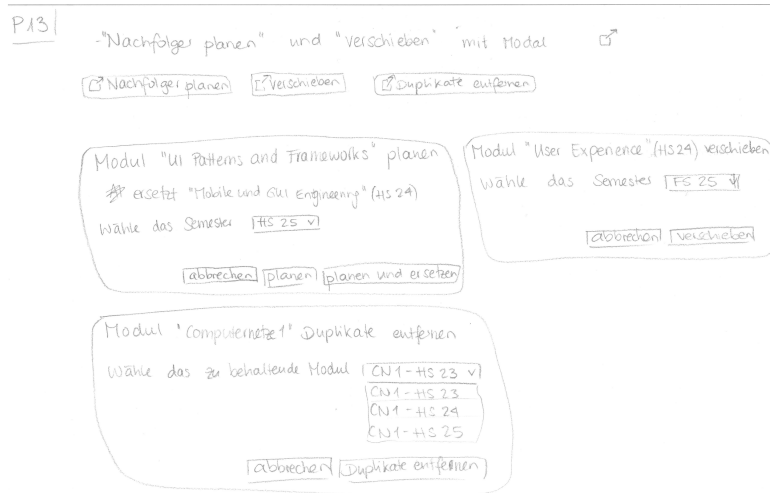 P13
- "Nachfolger planen" und "verschieben" mit Modal
Nachfolger planen verschieben Duplikate entfernen
Modul "UI Patterns and Frameworks" planen
ersetzt "Mobile und GUI Engineering" (HS24)
Wähle das Semester HS 25
abbrechen planen planen und ersetzen
Modul "User Experience" (HS24) verschieben
Wähle das Semester FS 25
abbrechen verschieben
Modul "Computernetze1" Duplikate entfernen
Wähle das zu behaltende Modul CN1 - HS 23
CN1 - HS 23
CN1 - HS 24
CN1 - HS 25
abbrechen Duplikate entfernen